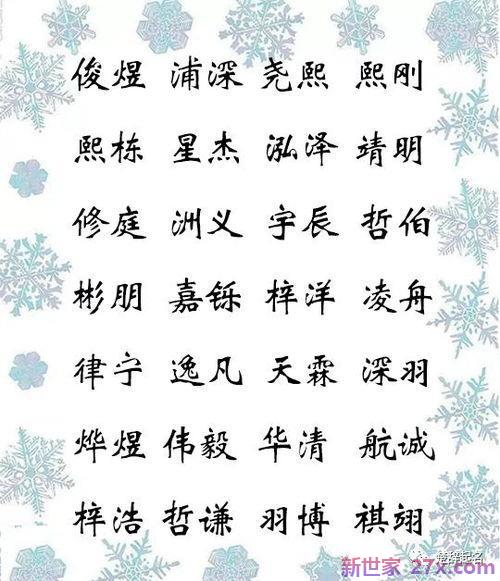 俊煜 浦深 尧熙 熙刚
熙栋 星杰 泓泽 靖明
修庭 洲义 宇辰 哲伯
彬朋 嘉铄 梓洋 凌舟
律宁 逸凡 天霖 深羽
烨煜 伟毅 华清 航诚
梓浩 哲谦 羽博 祺翊
新世家 27x.com